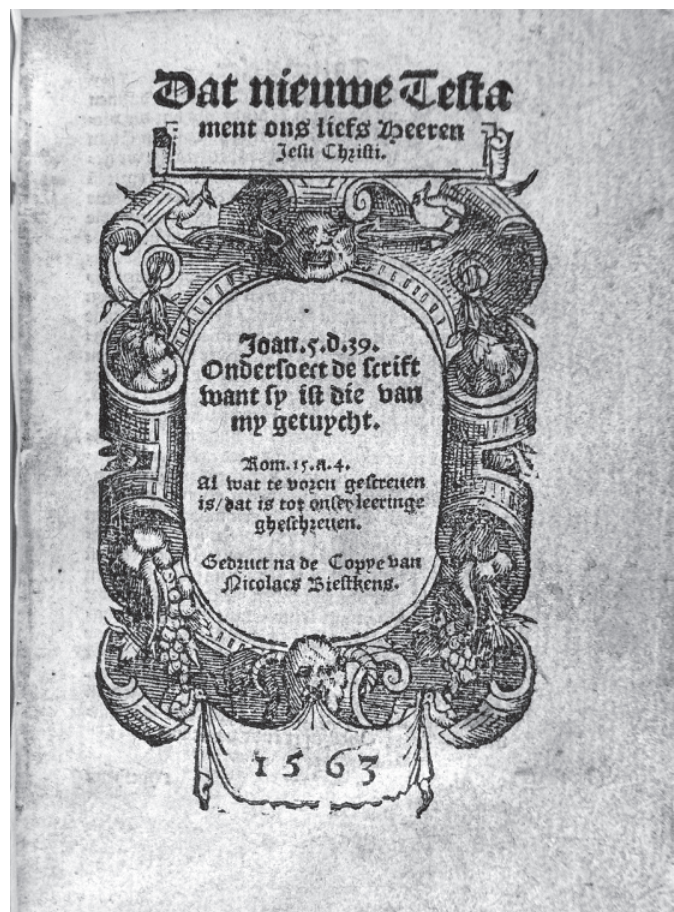 Dat nieuwe Testa
ment ons liefs Heeren
Jesu Christi.
Joan.5.d.39.
Ondersoect de scrift
want sy ist die van
my getuycht.
Rom.15.a.4.
Al wat te voren gescreuen
is/dat is tot onser leeringe
gheschreuen.
Gedruct na de Coppe van
Nicolaes Biestkens.
1563